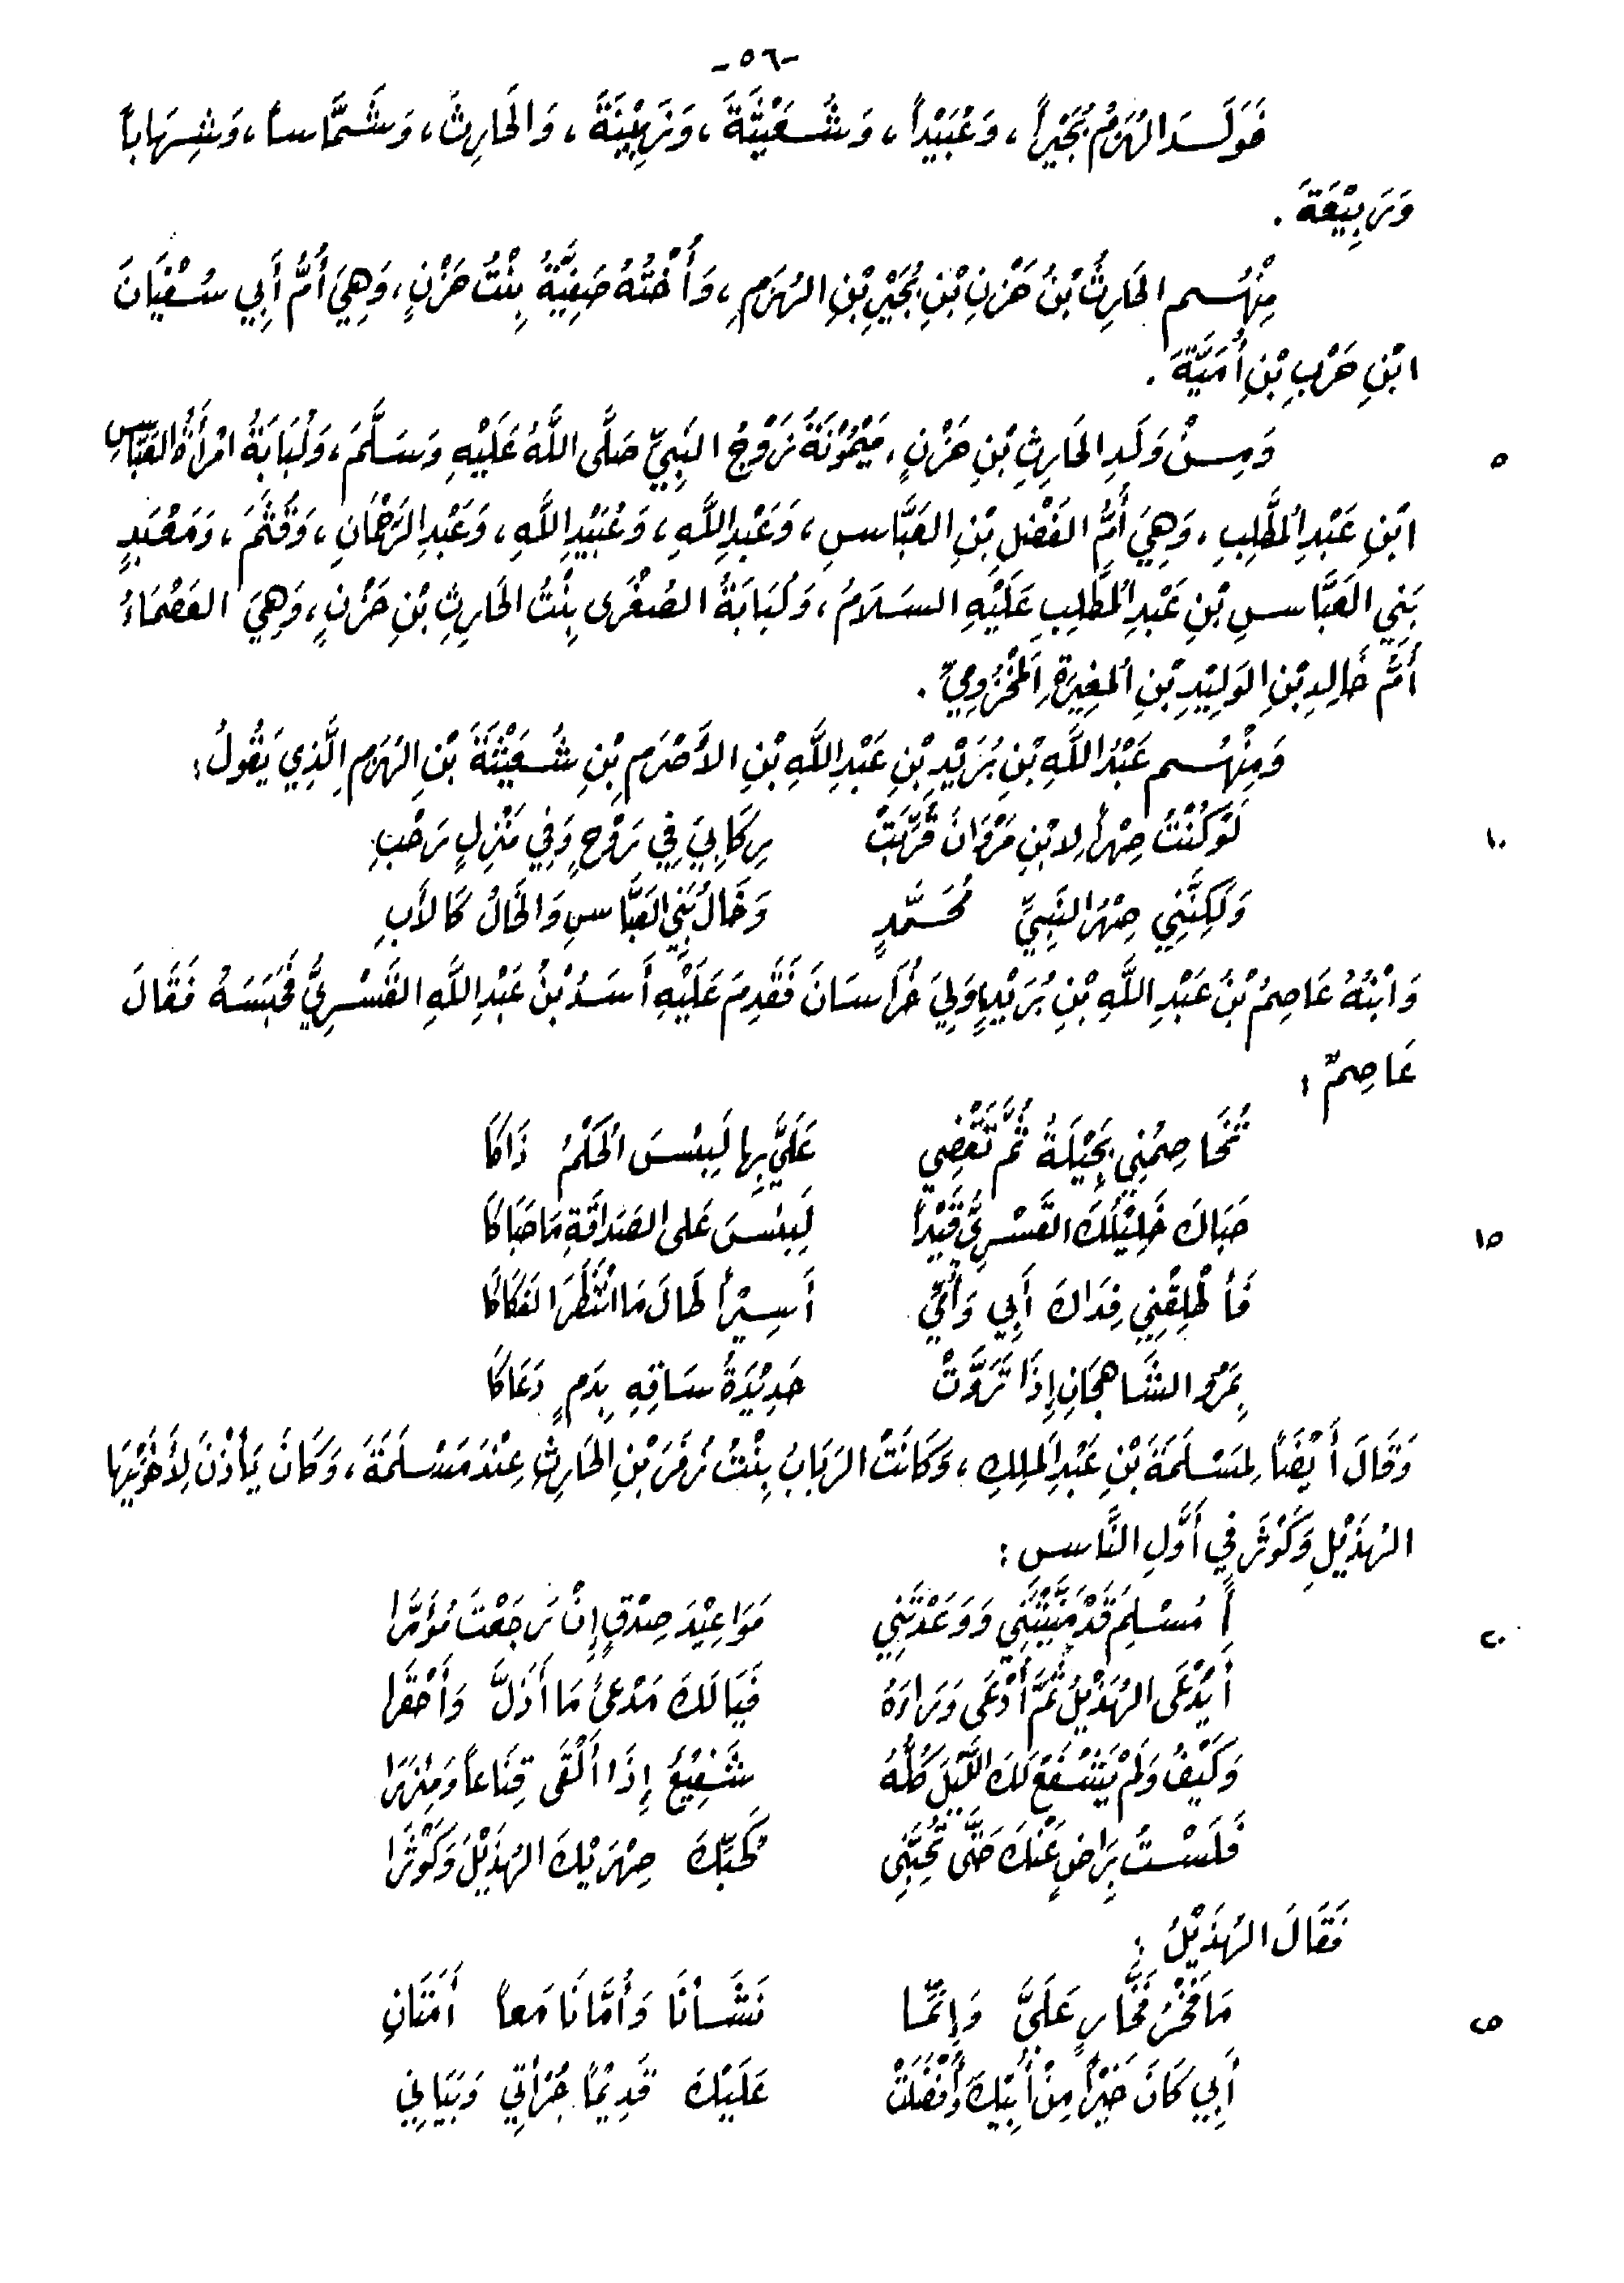 -٥٦-
فَوَلَدَ الهُزَمُ بُجَيْراً، وَعُبَيْداً، وَشُعَيْثَةَ، وَرَبِيْنَةَ، وَالحَارِثَ، وَشَمَّاساً، وَشِهَاباً
وَرَبِيْعَةَ.
مِنْهُم الحَارِثُ بْنُ حَزْنِ بْنِ بُجَيْرِ بْنِ الهُزَمِ، وَأُخْتُهُ صَفِيَّةُ بِنْتُ حَزْنٍ، وَهِيَ أُمُّ أَبِي سُفْيَانَ
ابْنِ حَرْبِ بْنِ أُمَيَّةَ.
وَمِنْ وَلَدِ الحَارِثِ بْنِ حَزْنٍ، مَيْمُوْنَةُ زَوْجُ النَّبِيِّ صَلَّى اللَّهُ عَلَيْهِ وَسَلَّمَ، وَلُبَابَةُ امْرَأَةُ العَبَّاسِ ٥
ابْنِ عَبْدِ المُطَّلِبِ، وَهِيَ أُمُّ الفَضْلِ بْنِ العَبَّاسِ، وَعَبْدِ اللَّهِ، وَعُبَيْدِ اللَّهِ، وَعَبْدِ الرَّحْمَانِ، وَقُثَمَ، وَمَعْبَدٍ
بَنِي العَبَّاسِ بْنِ عَبْدِ المُطَّلِبِ عَلَيْهِ السَلَامُ، وَلُبَابَةُ الصُغْرَى بِنْتُ الحَارِثِ بْنِ حَزْنٍ، وَهِيَ العَصْمَاءُ
أُمُّ خَالِدِ بْنِ الوَلِيْدِ بْنِ المُغِيْرَةِ المَخْزُومِيِّ.
وَمِنْهُم عَبْدُ اللَّهِ بْنِ يَزِيْدِ بْنِ عَبْدِ اللَّهِ بْنِ الأَصْرَمِ بْنِ شُعَيْثَةَ بْنِ الهُزَمِ الَّذِي يَقُولُ:
لَوْ كُنْتُ صِهْراً لِابْنِ مَرْوَانَ قُرِّبَتْ رِكَابِيَ فِي رَوْحٍ وَفِي مَنْزِلٍ رَحْبِ ١٠
وَلَكِنَّنِي صِهْرُ النَّبِيِّ مُحَمَّدٍ وَخَالُ بَنِي العَبَّاسِ وَالخَالُ كَالأَبِ
وَابْنُهُ عَاصِمُ بْنُ عَبْدِ اللَّهِ بْنِ يَزِيْدِ وَلِيَ خُرَاسَانَ فَقَدِمَ عَلَيْهِ أَسَدُ بْنُ عَبْدِ اللَّهِ القَسْرِيُّ فَحَبَسَهُ فَقَالَ
عَاصِمٌ:
تُخَاصِمُنِي بَجِيْلَةُ ثُمَّ تَقْضِي عَلَيَّ بِها لَبِئْسَ الحُكْمُ ذَاكَا
حَبَاكَ خَلِيْلُكَ القَسْرِيُّ قَيْداً لَبِئْسَ عَلَى الصَدَاقَةِ مَا حَبَاكَا ١٥
فَأَطْلِقْنِي فِدَاكَ أَبِي وَأُمِّي أَسِيْراً طَالَ مَا انْتَظَرَ الفَكَاكَا
بِمَرْوِ الشَاهِجَانِ إِذَا تَرَوَّتْ حَدِيْدَةُ سَاقِهِ بِدَمٍ دَعَاكَا
وَقَالَ أَيْضَاً لِمَسْلَمَةَ بْنِ عَبْدِ المَلِكِ، وَكَانَتْ الرَبَابُ بِنْتُ زُفَرَ بْنِ الحَارِثِ عِنْدَ مَسْلَمَةَ، وَكَانَ يَأْذَنُ لِأَخَوَيْهَا
الهُذَيْلِ وَكَوْثَرَ فِي أَوَّلِ النَّاسِ:
أَ مُسْلِمَ قَدْ مَنَّيْتَنِي وَوَعَدْتَنِي مَوَاعِيْدَ صِدْقٍ إِنْ رَجَعْتَ مُؤَمَّرَا ٢٠
أَيُدْعَى الهُذَيْلُ ثُمَّ أُدْعَى وَرَاءَهُ فَيَا لَكَ مَدْعَىً مَا أَذَلَّ وَأَحْقَرَا
وَكَيْفَ وَلَمْ يَشْفَعْ لَكَ اللَّيْلَ كُلَّهُ شَفِيْعٌ إِذَا أَلْقَى قِنَاعاً وَمِئْزَرَا
فَلَسْتُ بِرَاضٍ عَنْكَ حَتَّى تُحِبَّنِي كَحُبِّكَ صِهْرَيْكَ الهُذَيْلَ وَكَوْثَرَا
فَقَالَ الهُذَيْلُ:
مَا فَخْرُ فَخَّارٍ عَلَيَّ وَإِنَّمَا نَشَأْنَا وَأُمَّانَا مَعاً أَمَتَانِ ٢٥
أَبِي كَانَ خَيْراً مِنْ أَبِيْكَ وَأُفْضِلَتْ عَلَيْكَ قَدِيْماً جُرْأَتِي وَبَيَانِي